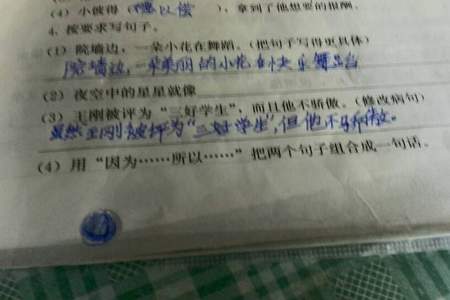 （4）小彼得（ ），拿到了他想要的报酬。
4. 按要求写句子。
（1）院墙边，一朵小花在舞蹈。（把句子写得更具体）
院墙边，一朵美丽的小花在快乐舞蹈
（2）夜空中的星星就像
（3）王刚被评为“三好学生”，而且他不骄傲。（修改病句）
虽然王刚被评为“三好学生”，但他不骄傲。
（4）用“因为……所以……”把两个句子组合成一句话。